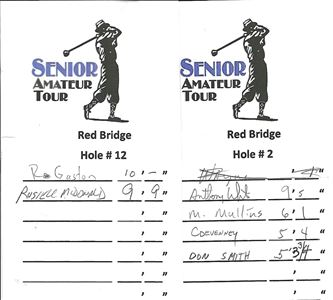 SENIOR
AMATEUR
TOUR
Red Bridge
Hole # 12
R Gaston 10 ' - "
RUSSELL McDONALD 9 ' 9 "
SENIOR
AMATEUR
TOUR
Red Bridge
Hole # 2
Anthony White 9 ' 5 "
M. Mullins 6 ' 1 "
COEVENNEY 5 ' 4 "
DON SMITH 5 ' 3 3/4 "